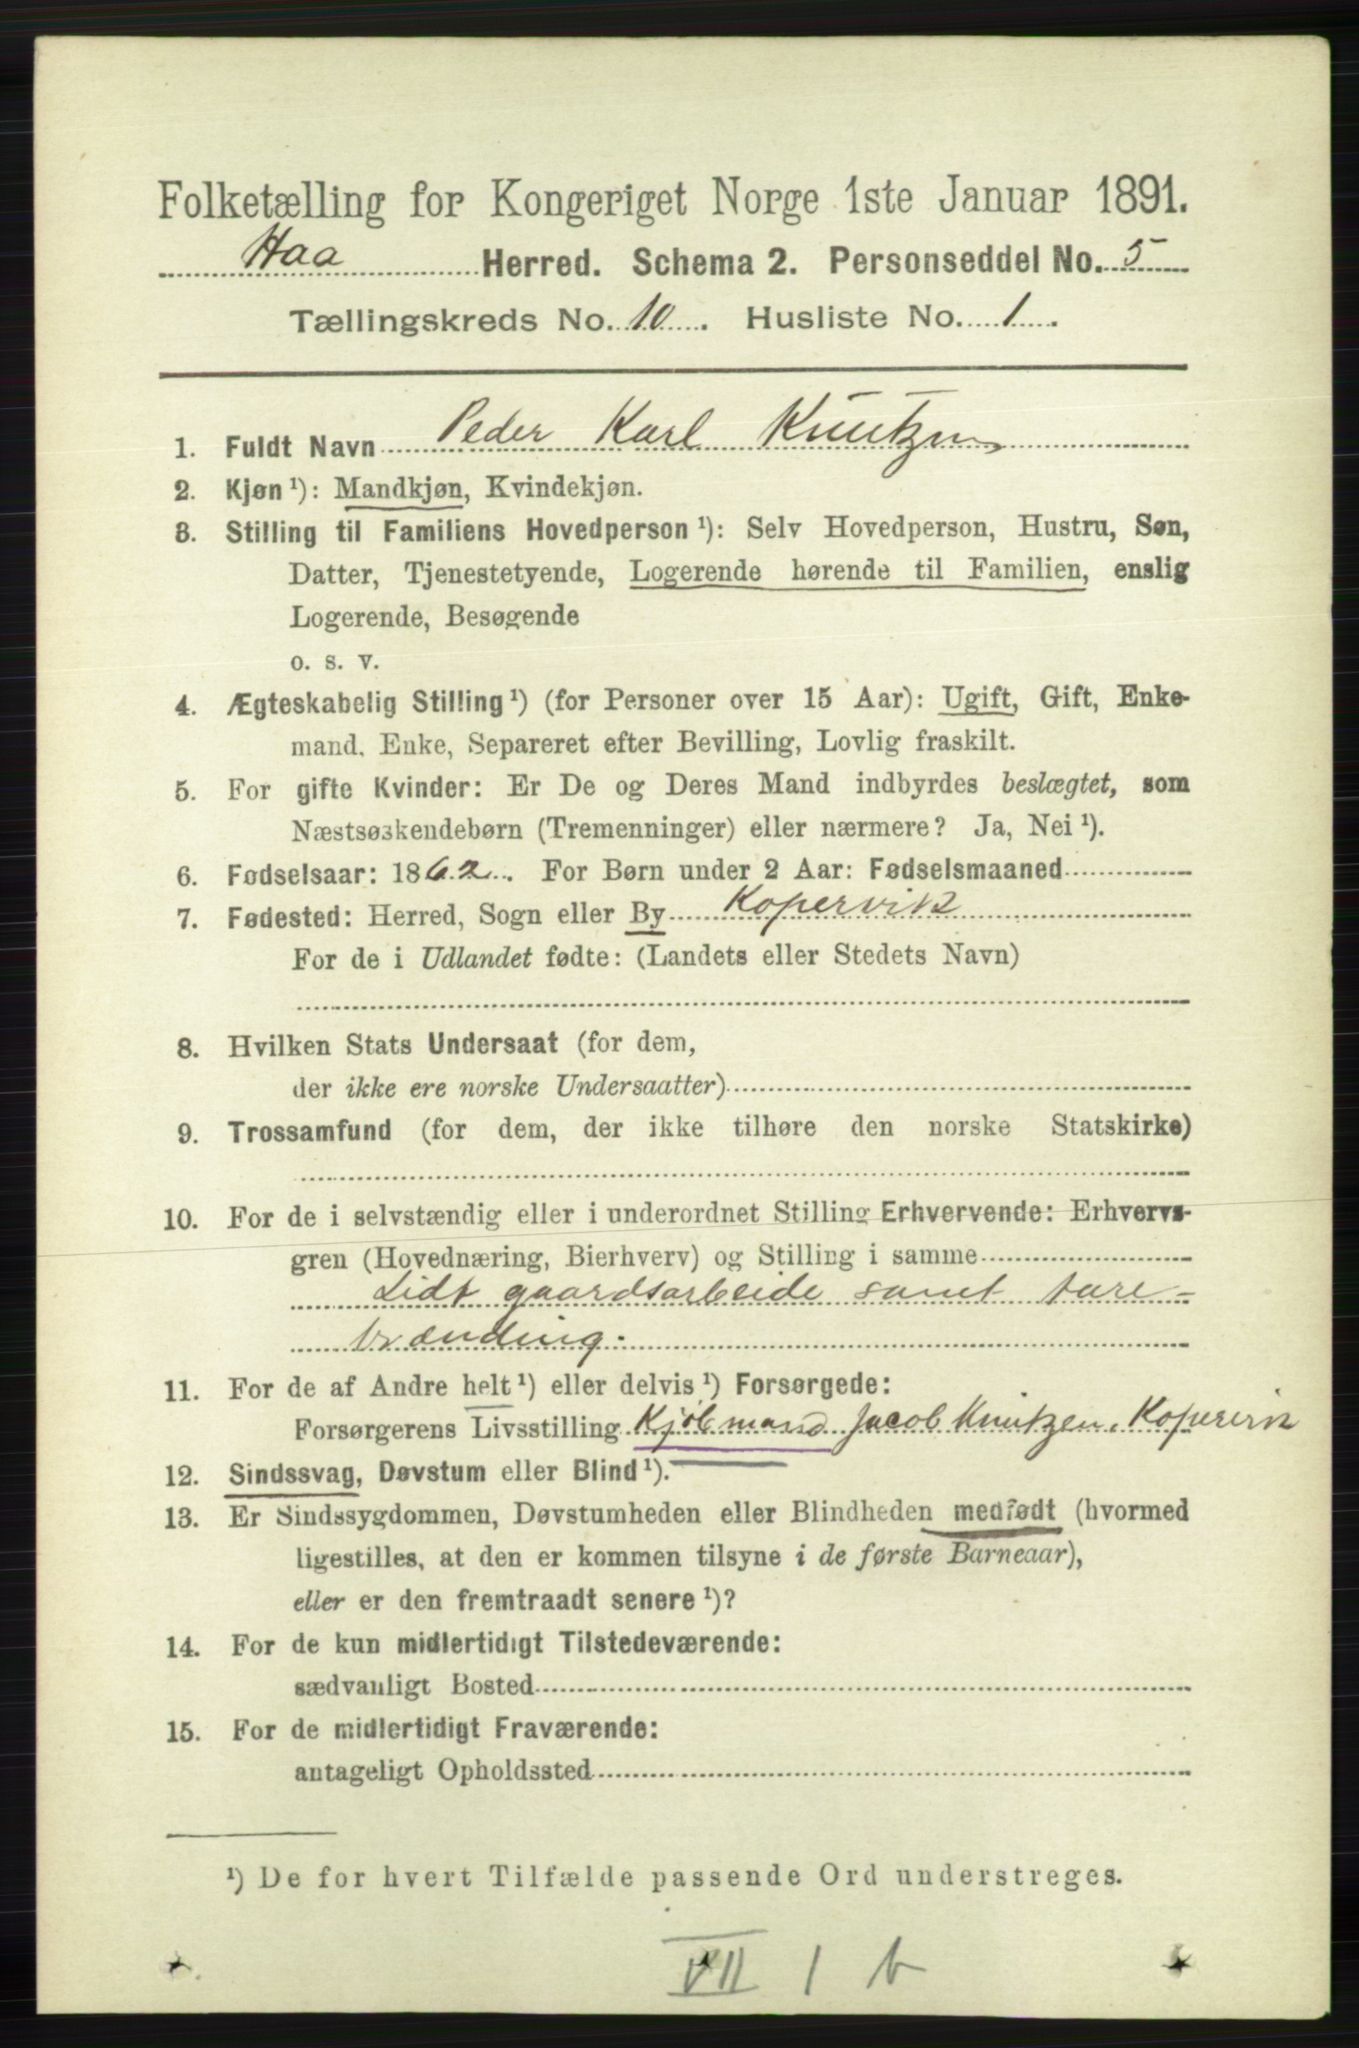 Folketælling for Kongeriget Norge 1ste Januar 1891.
Haa Herred. Schema 2. Personseddel No. 5
Tællingskreds No. 10. Husliste No. 1.
1. Fuldt Navn Peder Karl Knutzen
2. Kjøn ¹): Mandkjøn, Kvindekjøn.
3. Stilling til Familiens Hovedperson ¹): Selv Hovedperson, Hustru, Søn,
Datter, Tjenestetyende, Logerende hørende til Familien, enslig
Logerende, Besøgende
o. s. v.
4. Ægteskabelig Stilling ¹) (for Personer over 15 Aar): Ugift, Gift, Enke-
mand, Enke, Separeret efter Bevilling, Lovlig fraskilt.
5. For gifte Kvinder: Er De og Deres Mand indbyrdes beslægtet, som
Næstsøskendebørn (Tremenninger) eller nærmere? Ja, Nei ¹).
6. Fødselsaar: 1862. For Børn under 2 Aar: Fødselsmaaned
7. Fødested: Herred, Sogn eller By Kopervik
For de i Udlandet fødte: (Landets eller Stedets Navn)
8. Hvilken Stats Undersaat (for dem,
der ikke ere norske Undersaatter)
9. Trossamfund (for dem, der ikke tilhøre den norske Statskirke)
10. For de i selvstændig eller i underordnet Stilling Erhvervende: Erhvervs-
gren (Hovednæring, Bierhverv) og Stilling i samme
Lidt gaardsarbeide samt tare-
brænding.
11. For de af Andre helt ¹) eller delvis ¹) Forsørgede:
Forsørgerens Livsstilling Kjøbmand Jacob Knutzen, Kopervik
12. Sindssvag, Døvstum eller Blind ¹).
13. Er Sindssygdommen, Døvstumheden eller Blindheden medfødt (hvormed
ligestilles, at den er kommen tilsyne i de første Barneaar),
eller er den fremtraadt senere ¹)?
14. For de kun midlertidigt Tilstedeværende:
sædvanligt Bosted
15. For de midlertidigt Fraværende:
antageligt Opholdssted
¹) De for hvert Tilfælde passende Ord understreges.
VII 1 b